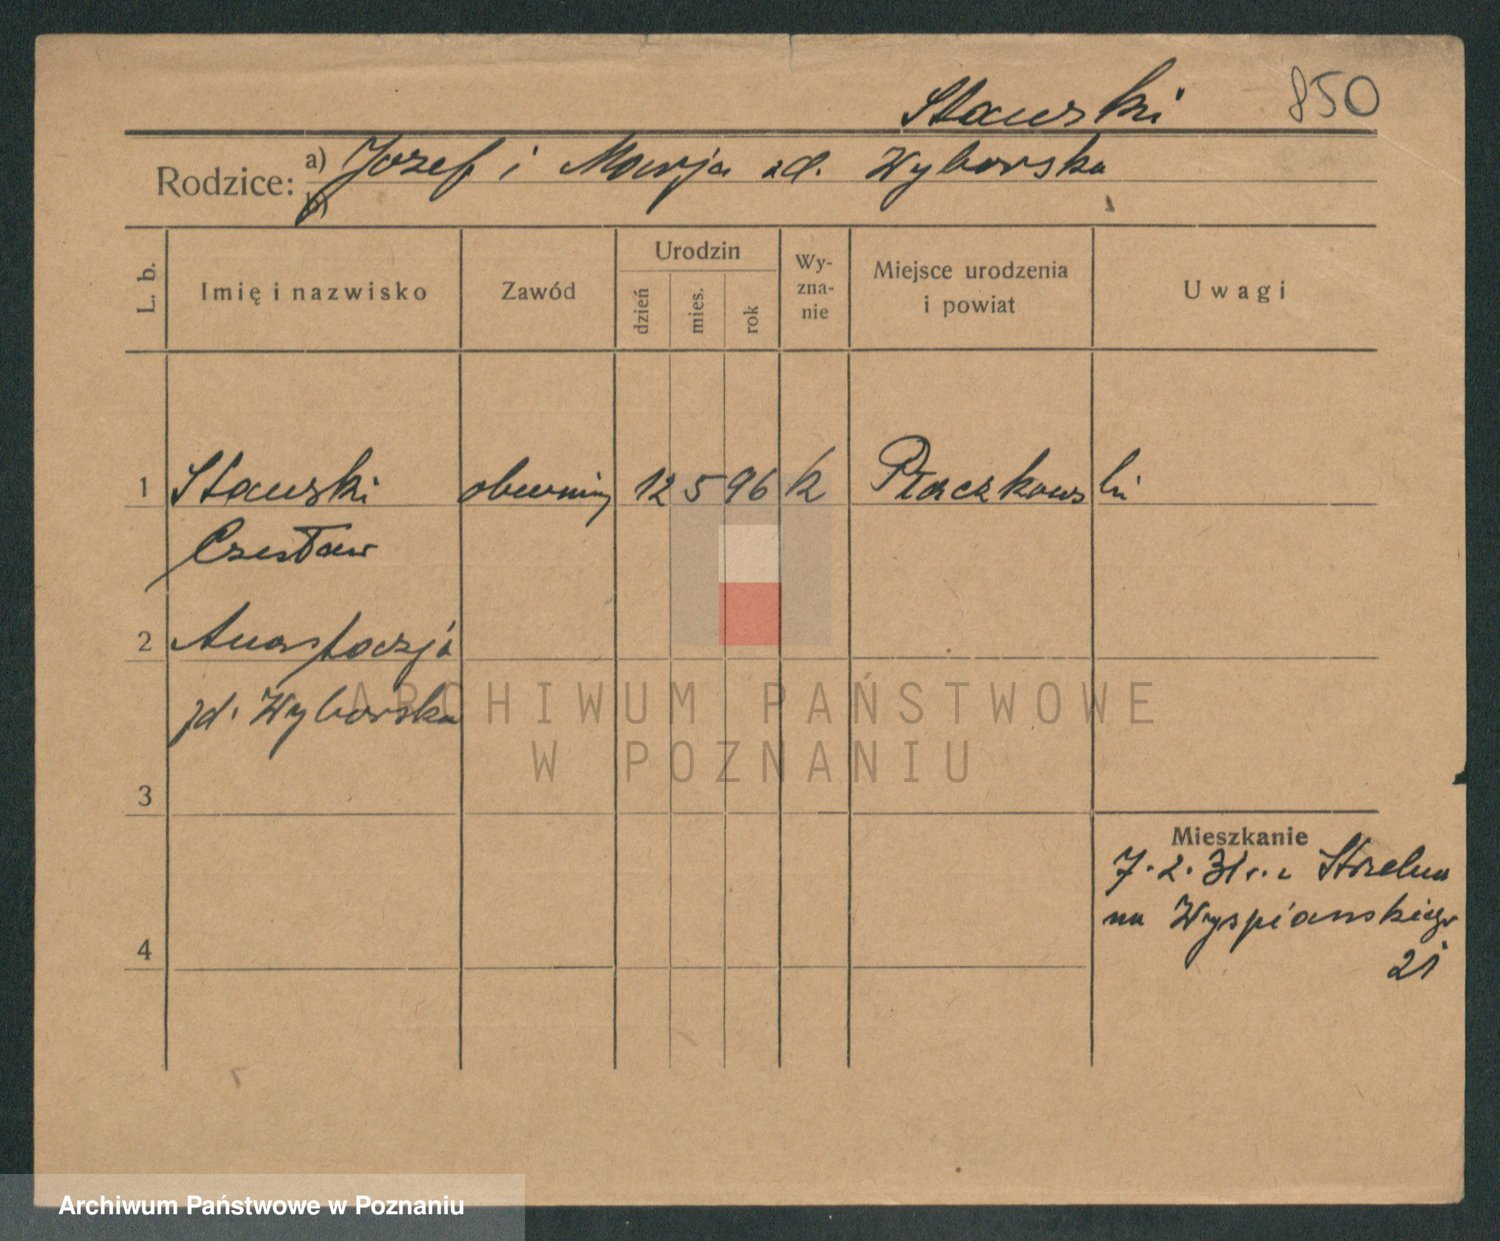 Stawski 850
Rodzice: a) Jozef i Marja zd. Wyborska
b)
L. b. Imię i nazwisko Zawód Urodzin dzień mies. rok Wy-zna-nie Miejsce urodzenia i powiat Uwagi
1 Stawski 12 5 96 k
Czesław
2 Anastazja
zd. Wyborska
ARCHIWUM PAŃSTWOWE
W POZNANIU
3
Mieszkanie
7.2.31 r. z Strzelna
na Wyspianskiego
4
21
Archiwum Państwowe w Poznaniu